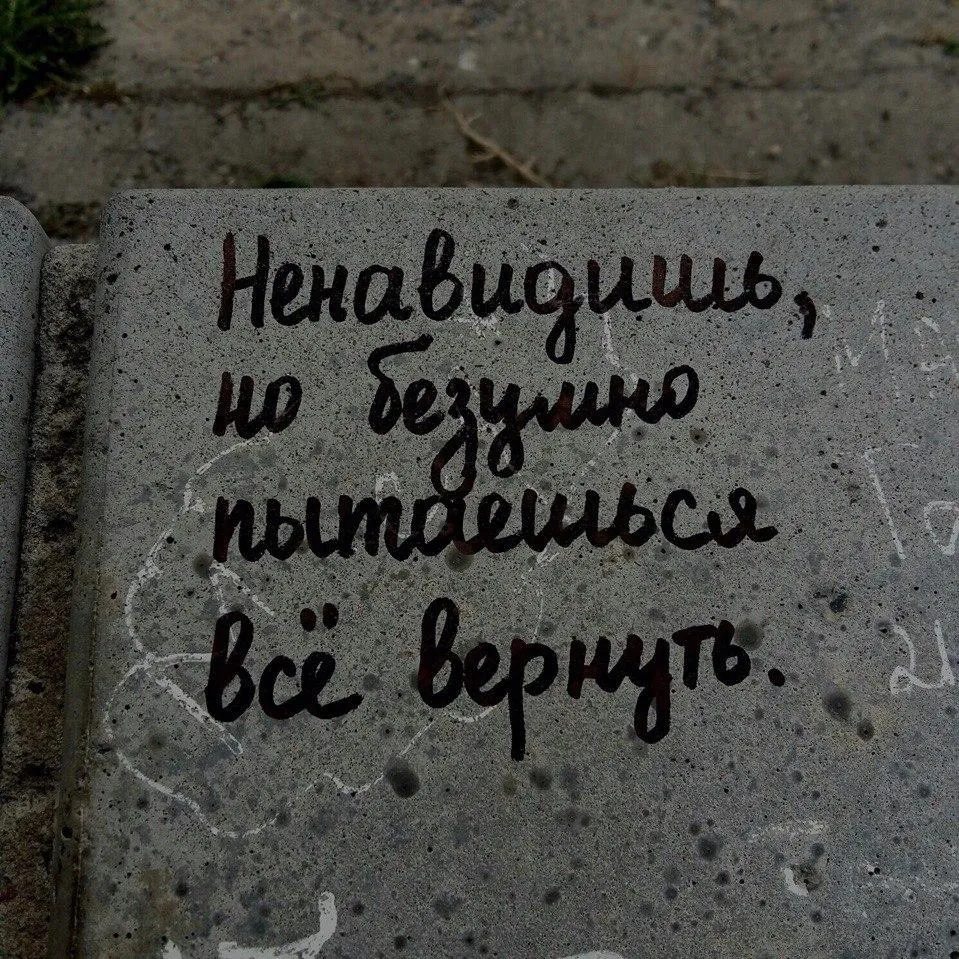 Ненавидишь,
но безумно
пытаешься
всё вернуть.